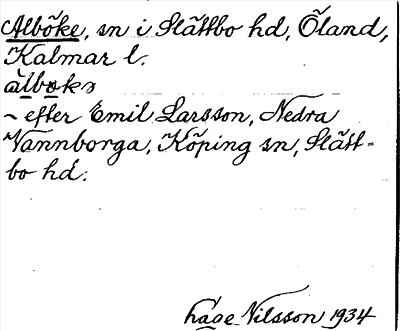 Alböke, sn i Slättbo hd, Öland,
Kalmar l.
àlbøkə
~ efter Emil Larsson, Nedra
Vannborga, Köping sn, Slätt-
bo hd.
Nilsson 1934